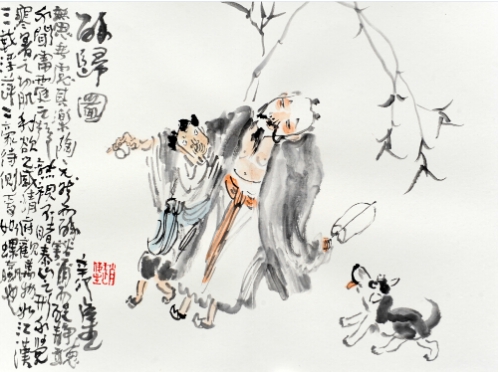 醉歸圖
無思無慮其樂陶陶兀然而醉豁爾而醒靜聽
不聞雷霆之聲熟視不睹泰山之形不覺
寒暑之切肌利欲之感情俯觀萬物如江漢
三載浮萍二豪侍側焉如螺蠃